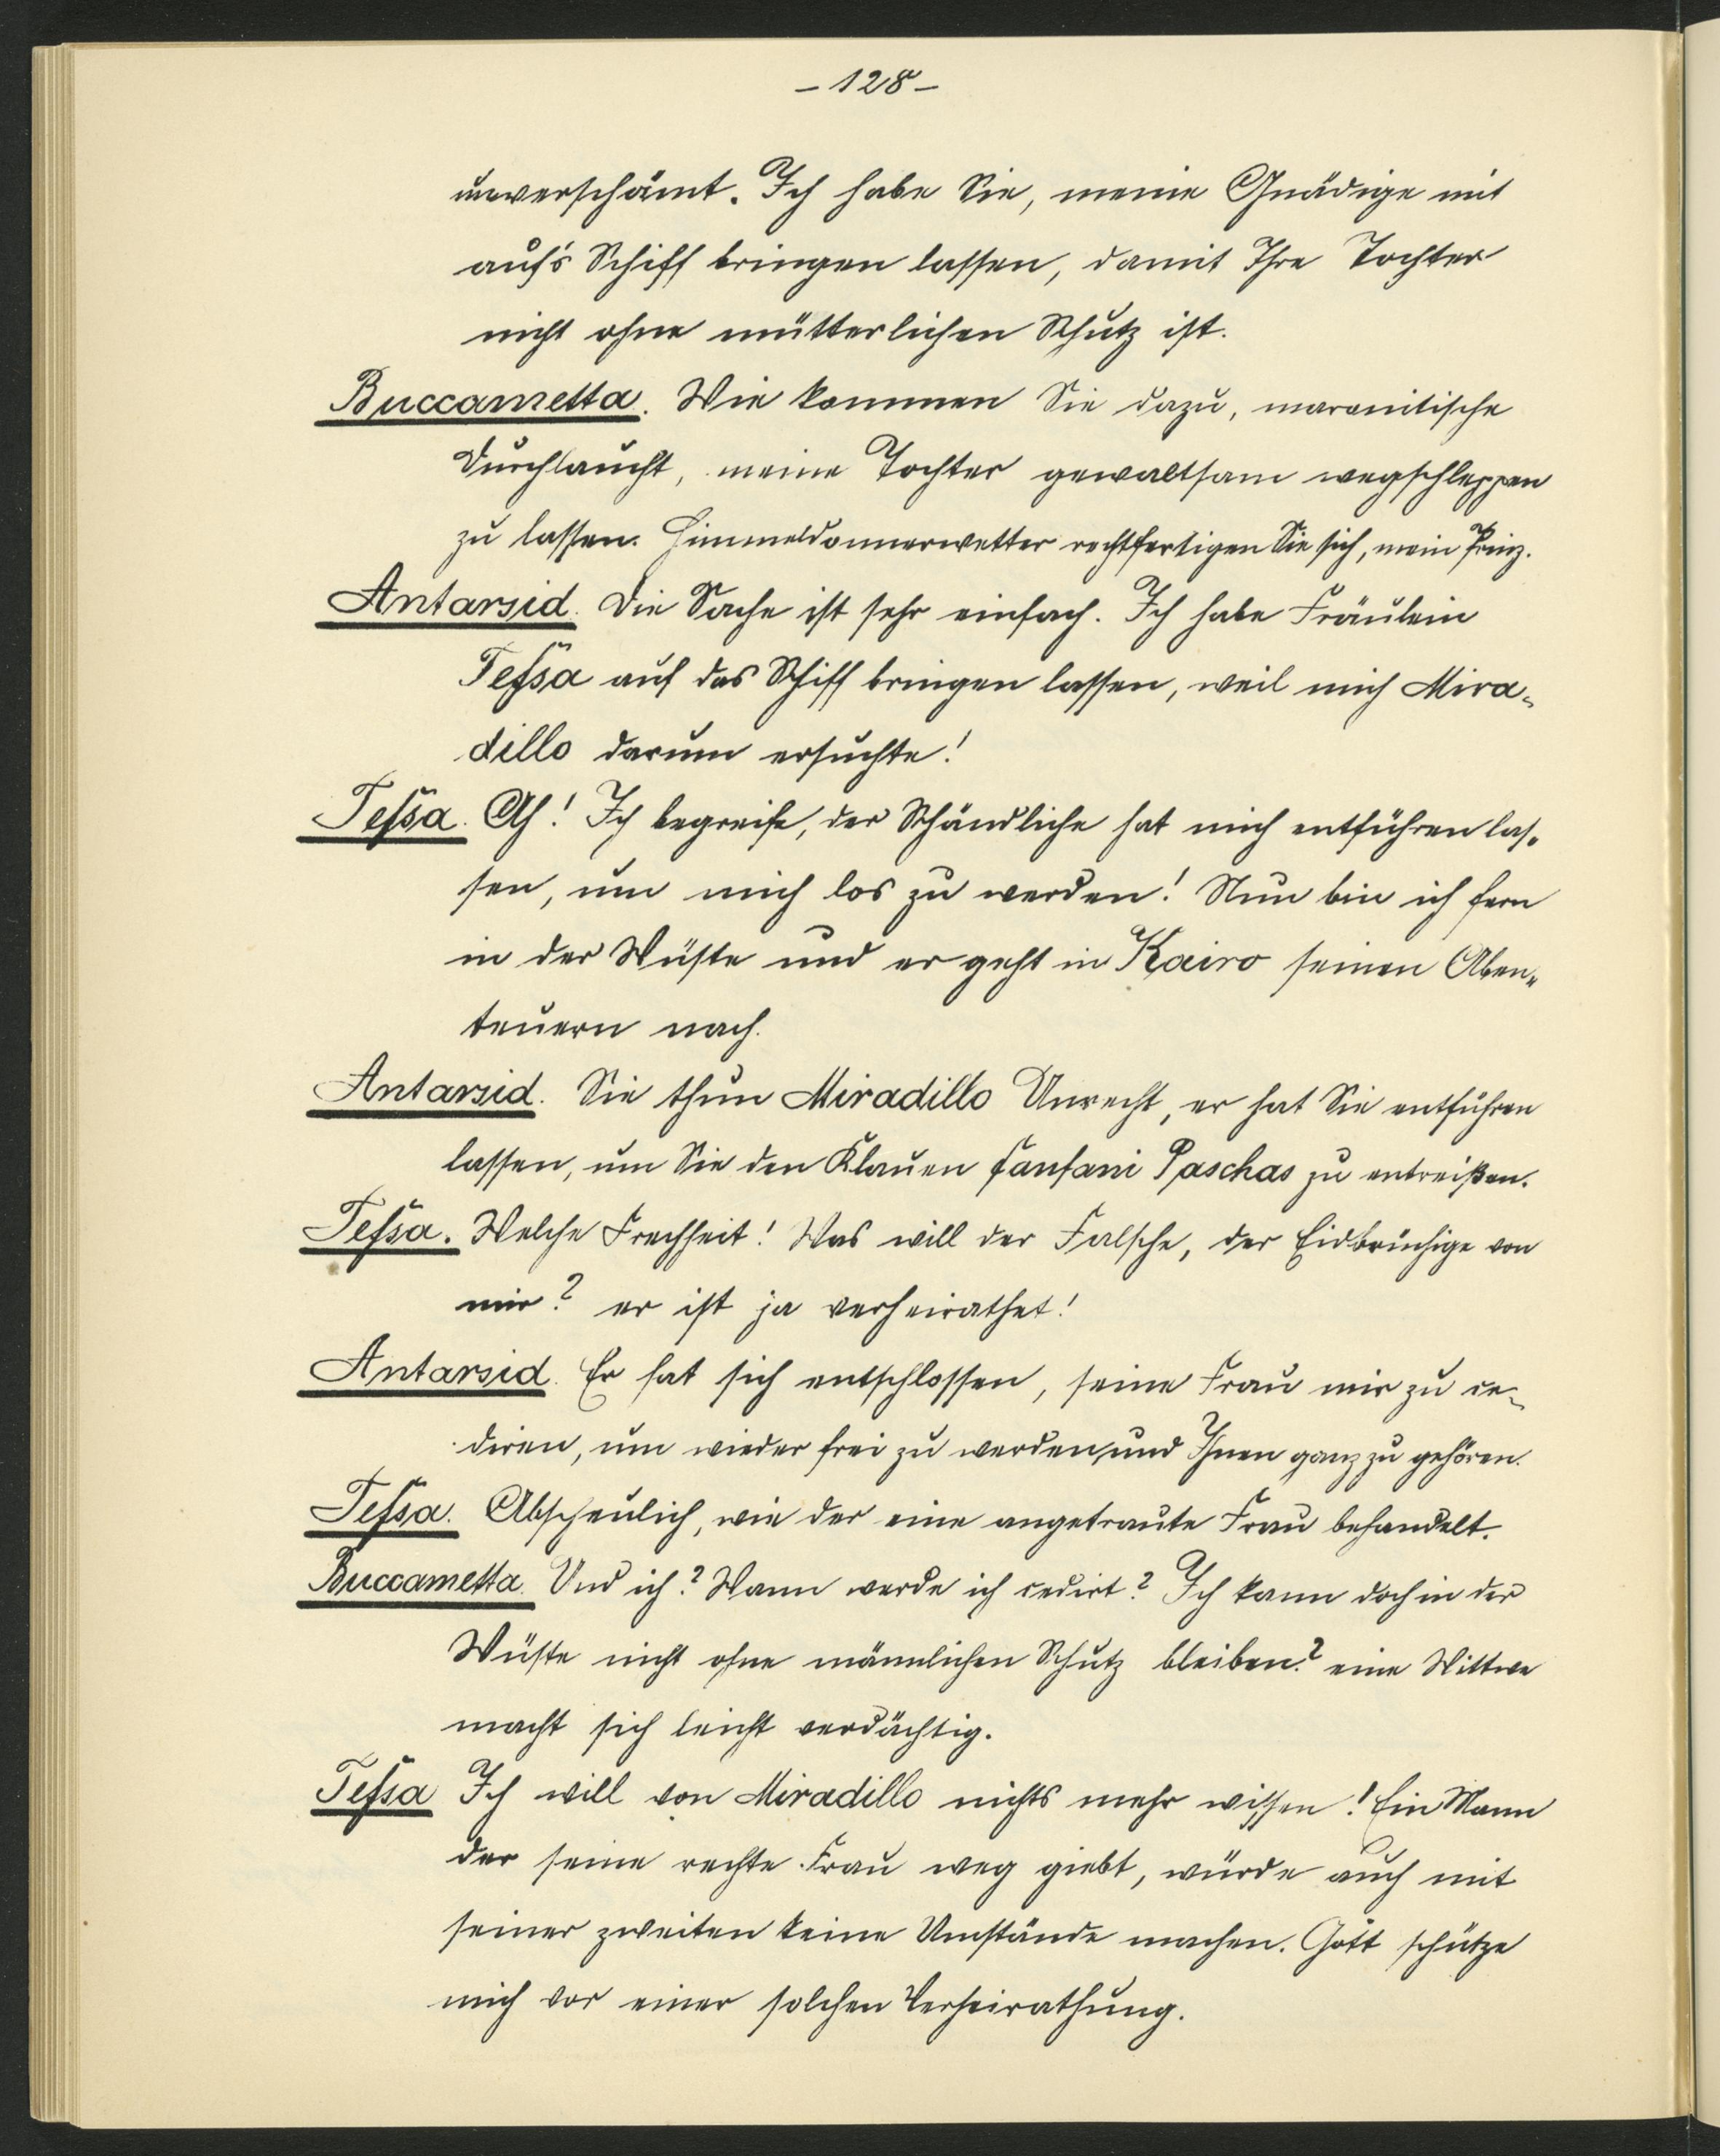 - 128 -
unverschämt. Ich habe Sie, meine Gnädige mit
auf's Schiff bringen lassen, damit Ihre Tochter
nicht ohne mütterlichen Schutz ist.
Buccametta. Wie kommen Sie dazu, maronitische
Durchlaucht, meine Tochter gewaltsam wegschleppen
zu lassen. Himmeldonnerwetter rechtfertigen Sie sich, mein Prinz.
Antarsid. Die Sache ist sehr einfach. Ich habe Fräulein
Tessa auf das Schiff bringen lassen, weil mich Mira-
dillo darum ersuchte!
Tessa. Ah! Ich begreife, der Schändliche hat mich entführen las-
sen, um mich los zu werden! Nun bin ich fern
in der Wüste und er geht in Kairo seinen Aben-
teuern nach.
Antarsid. Sie thun Miradillo Unrecht, er hat Sie entführen
lassen, um Sie den Klauen Fanfani Paschas zu entreißen.
Tessa. Welche Frechheit! Was will der Falsche, der Eidbrüchige von
mir? er ist ja verheirathet!
Antarsid. Er hat sich entschlossen, seine Frau mir zu ce-
diren, um wieder frei zu werden, und Ihnen ganz zu gehören.
Tessa. Abscheulich, wie der eine angetraute Frau behandelt.
Buccametta. Und ich? Wann werde ich cedirt? Ich kann doch in der
Wüste nicht ohne männlichen Schutz bleiben? eine Wittwe
macht sich leicht verdächtig.
Tessa Ich will von Miradillo nichts mehr wissen! Ein Mann
der seine rechte Frau weg giebt, würde auch mit
seiner zweiten keine Umstände machen. Gott schütze
mich vor einer solchen Verheirathung.